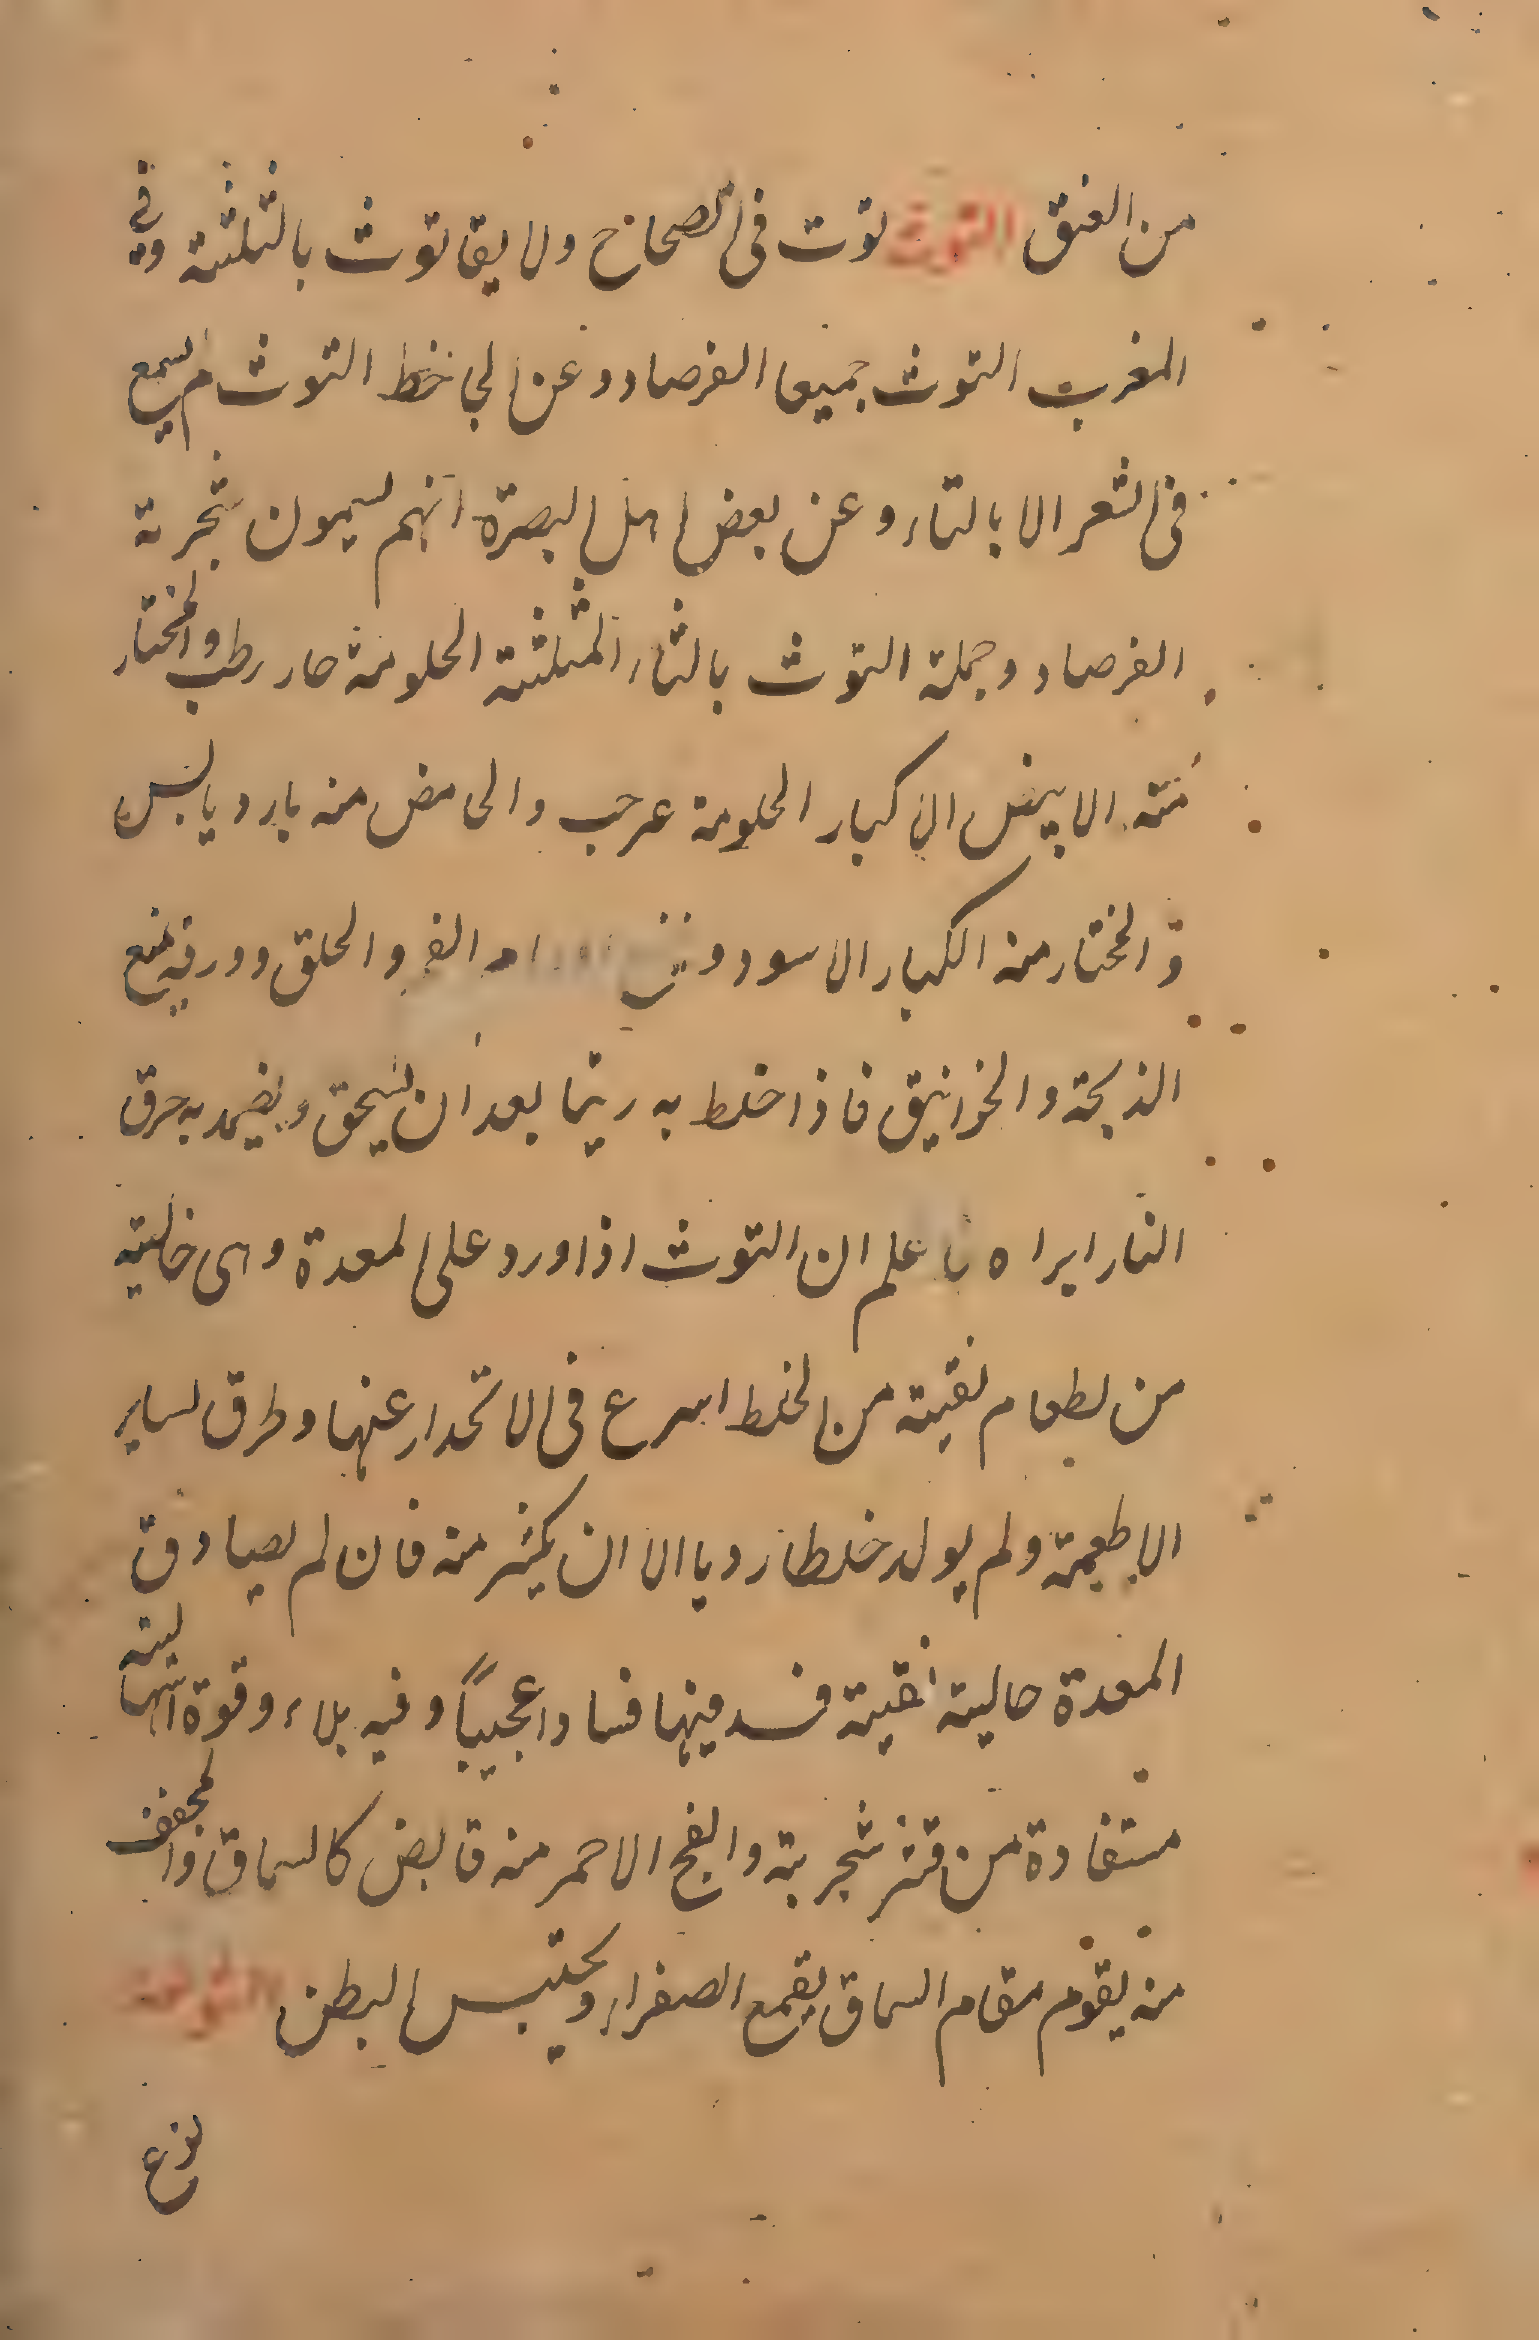 من العنق التوت توت فى الصحاح ولا يقا توث بالثلثة وفى
المغرب التوث جميعا الفرصاد وعن الجاحظ التوث لم يسمع
فى الشعر الا بالتاء وعن بعض اهل البصرة انهم يسمون شجرته
الفرصاد وحملة التوث بالثاء المثلثة الحلو منه حار رطب والمختار
منه الابيض الكبار الحلو منه عرحب والحامض منه بارد يابس
والمختار منه الكبار الاسود و الفم والحلق وورقه ينفع
الذبحة والخوانيق فاذا خلط به زيتا بعد ان يسحق ويضمد به حرق
النار ابراه فاعلم ان التوث اذا ورد على المعدة وهى خالية
من لطعام نقية من الخلط اسرع فى الانحدار عنها وطرق لساير
الاطعمة ولم يولد خلطا رديا الا ان يكثر منه فان لم يصادق
المعدة حالية نقية فسد فيها فسادا عجيباً وفيه بلاء وقوة اسهالية
مستفادة من قشر شجرته والفج الاحمر منه قابض كالسماق والمجفف
منه يقوم مقام السماق يقمع الصفراء ويحتبس البطن
نوع